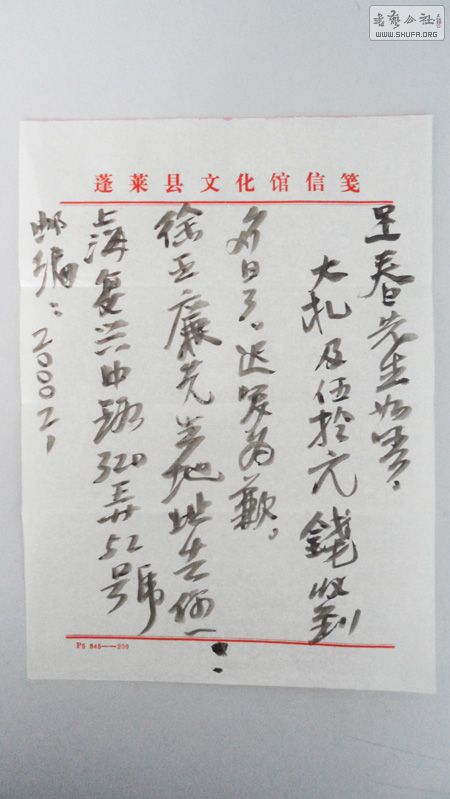 书艺公社
WWW.SHUFA.ORG
蓬莱县文化馆信笺
春先生如晤,
大札及伍拾元錢收到
多日了。迟复为歉。
徐正廉先生地址告你一
上海复兴中路320弄52號
邮编:200021
P5 845——200